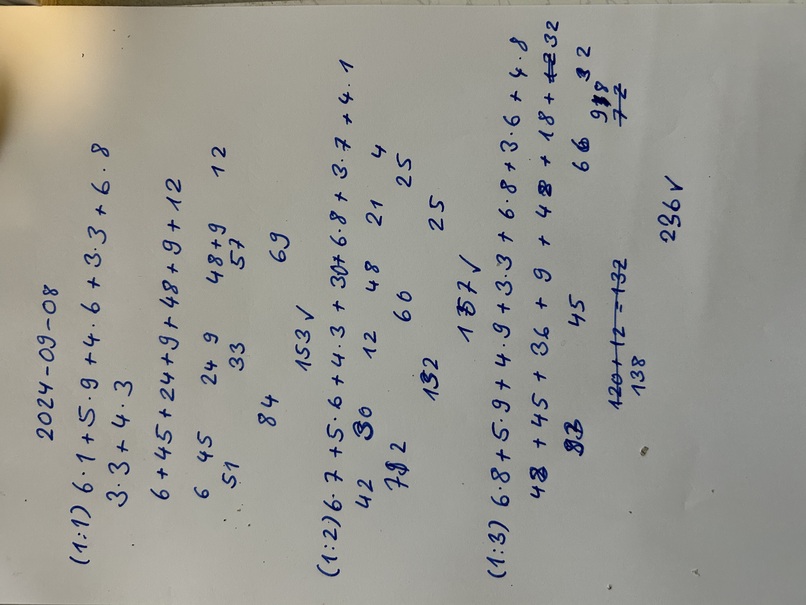 2024-09-08
(1:1) 6·1+5·9+4·6+3·3+6·8
3·3+4·3
6+45+24+9+48+9+12
6 45 24 9 48+9 12
51 33 57
84 69
153 ✓
(1:2) 6·7+5·6+4·3+30+6·8+3·7+4·1
42 30 12 48 21 4
72 60 25
132 25
157 ✓
(1:3) 6·8+5·9+4·9+3·3+6·8+3·6+4·8
48+45+36+9+48+18+12 32
93 45 66 32
98
120+12=132 72
138
236 ✓